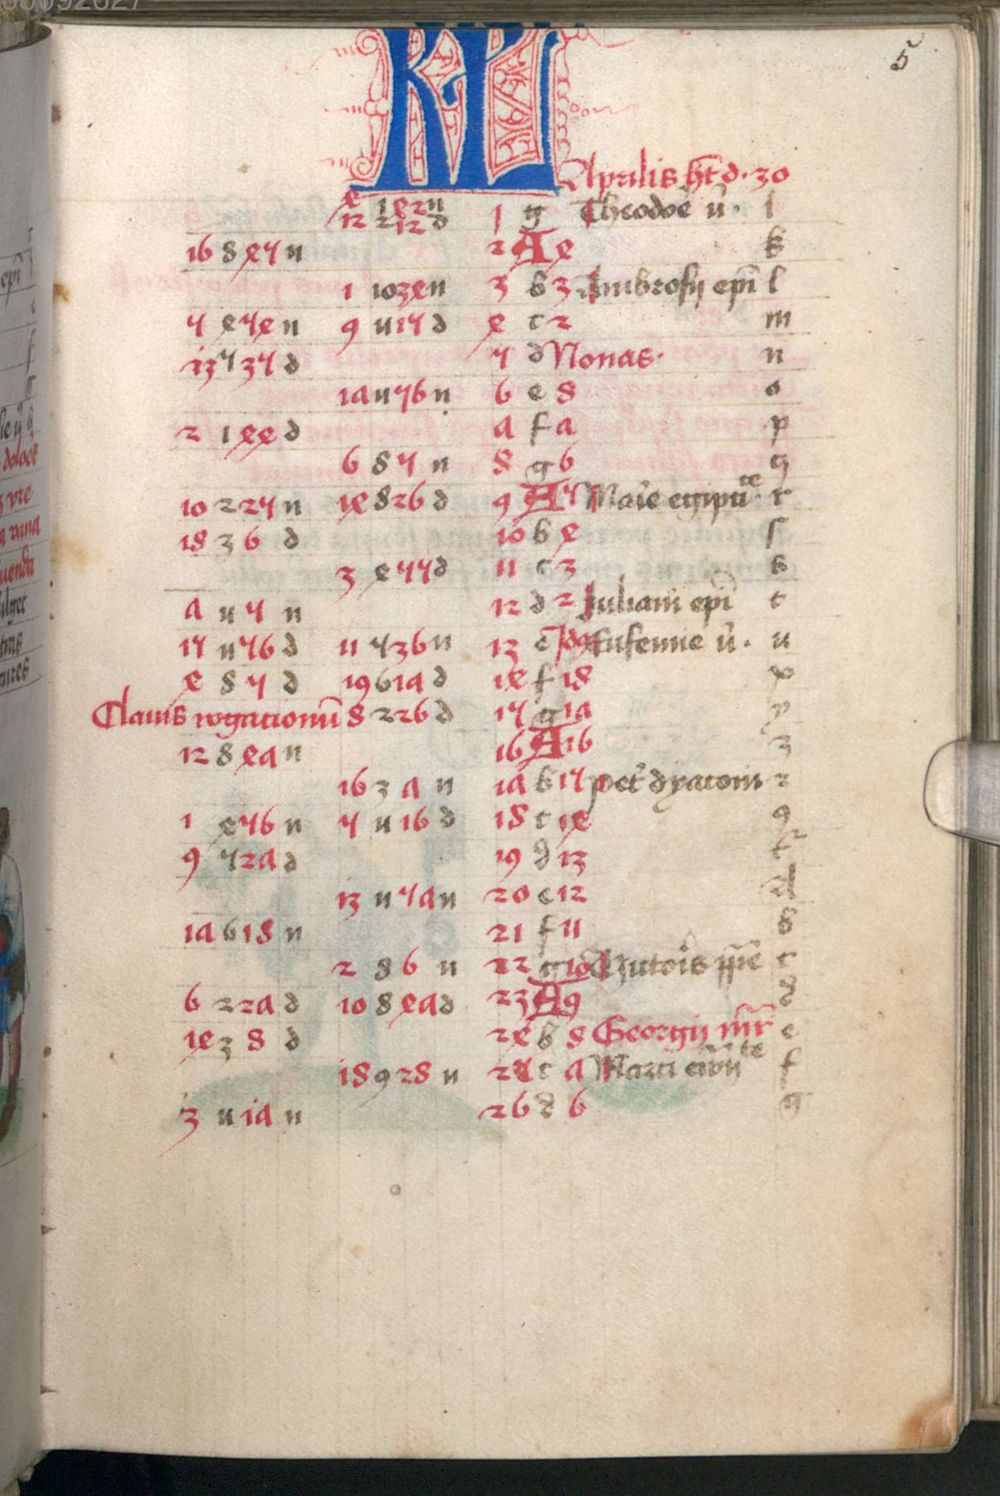 5
KL
Aprilis ht d. 30
e 1 e 2 n
12 2 12 d 1 g Theodoe v. l
16 8 e 4 n 2 A e k
1 10 3 e n 3 b 3 Ambrosij epi l
4 e 4 e n 9 u 14 d e c 2 m
13 4 3 4 d 4 d Nonas. n
1a u 46 n 6 e 8 o
2 1 e e d a f a p
6 8 4 n 8 g 6 q
10 2 24 n 1e 8 26 d 9 A 4 Marie egiptite r
18 3 6 d 10 b e ſ
3 e 44 d 11 c 3 s
a u 4 n 12 d 2 Juliani epi t
14 u 46 d 11 4 36 n 13 e Id9 Eufemie v. u
e 8 4 d 19 6 1a d 1e f 18 x
Clauis rogationu 8 2 26 d 14 g 1a y
12 8 e a n 16 A 16 z
16 3 a n 1a b 14 pet dyaconi
1 e 46 n 4 u 16 d 18 c 1e 9
9 4 2a d 19 d 13
13 u 4a n 20 e 12
1a 6 18 n 21 f 11
2 8 6 n 22 g 10 c
6 2 2a d 10 8 e a d 23 A 9 d
1e 3 8 d 2e b 8 Georgij mr e
18 9 28 n 24 c a Marci f
3 u 1a n 26 d 6 g